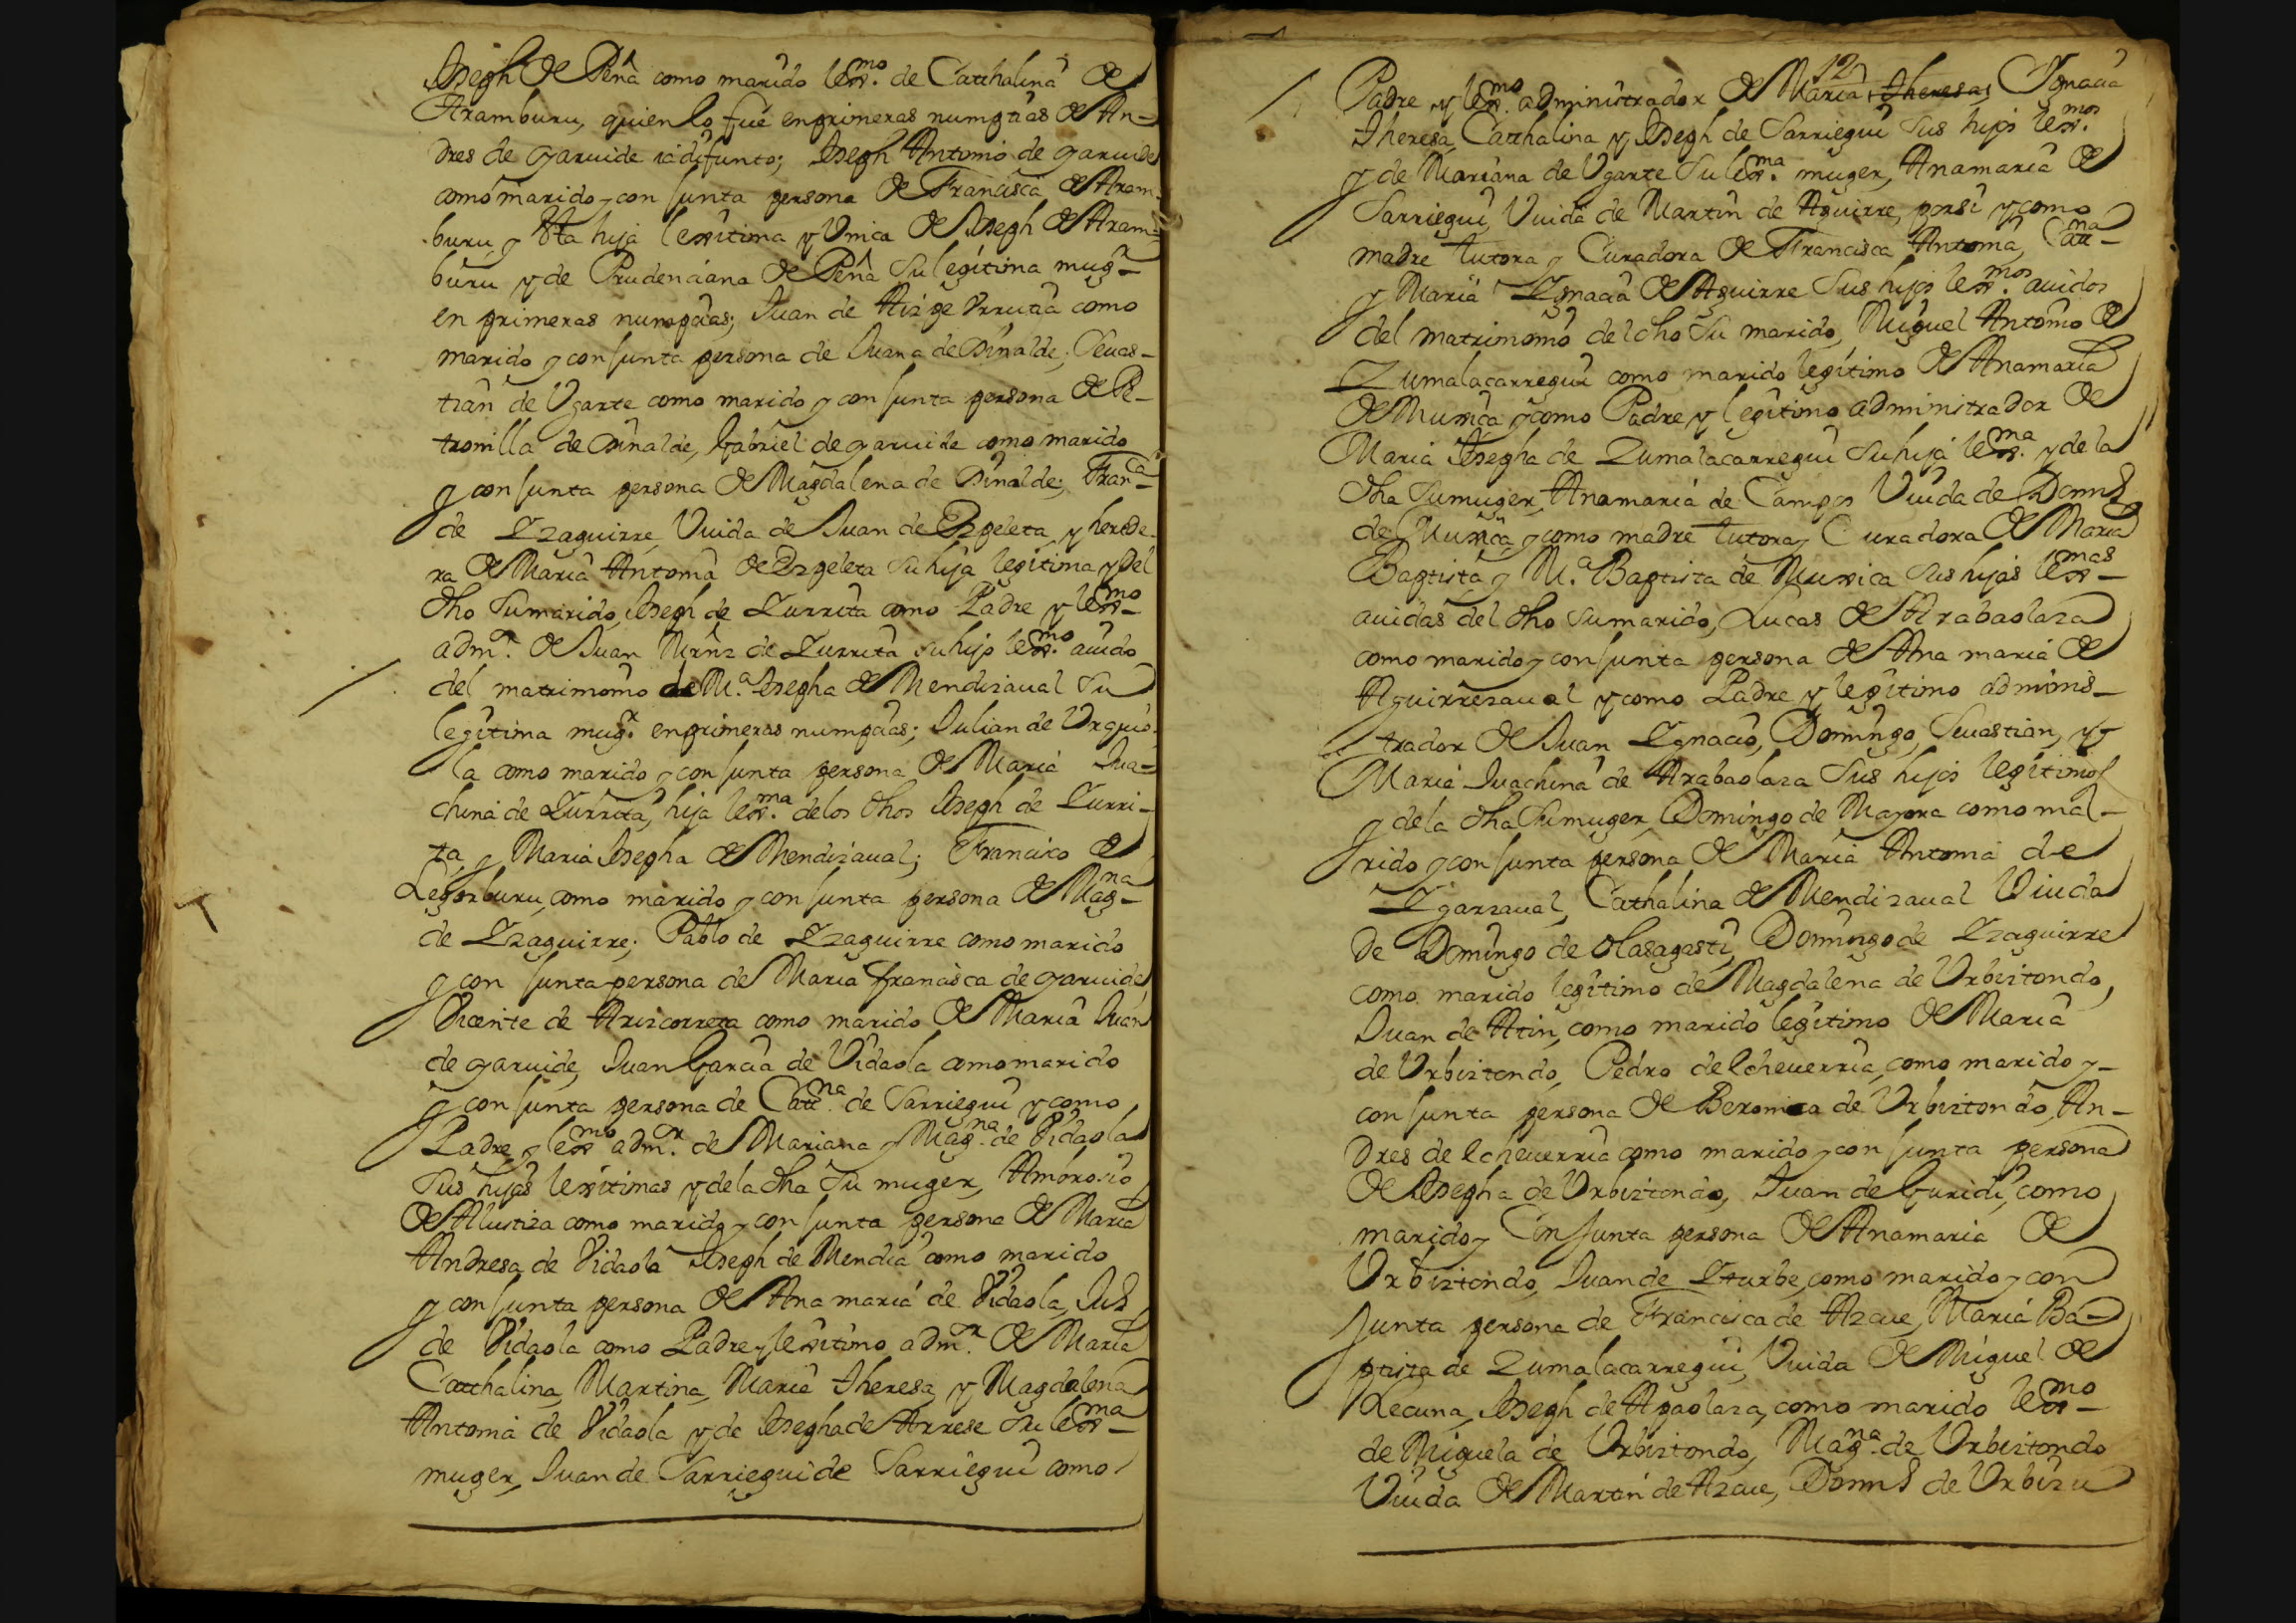 Joseph de Peña como marido lexmo. de Catthalina de
Aramburu, quien lo fue en primeras numpçias de An-
dres de garuide ia difunto; Joseph Antonio de garuide
como marido y conjunta persona de Francisca de Aram-
buru, y Vta hija lexitima y Unica de Joseph de Aram-
buru y de Prudençiana de Peña su legítima mugr
en primeras numpçias; Juan de Aizpe Vrrutia como
marido y conjunta persona de Juana de Elinalde; Seuas-
tian de Vgarte como marido y conjunta persona de Pe-
tronilla de Elinalde, Gabriel de garuide como marido
y conjunta persona de Magdalena de Elinalde; Franca
de Yzaguirre Viuda de Juan de Ezpeleta, y herede-
ra de Maria Antonia de Ezpeleta su hija legítima y del
dho su marido, Joseph de Zurrita como Padre y lexmo
admr. de Juan Mrnz de Zurrita su hijo lexmo. auido
del matrimonio de Ma. Josepha de Mendizaual su
legítima mugr. en primeras numpçias; Julian de Vrquio-
la como marido y conjunta persona de Maria Jua-
china de Zurrita, hija lexma. de los dhos Joseph de Zurri-
ta, y Maria Josepha de Mendizaual; Francisco de
Legorburu, como marido y conjunta persona de Magna
de Yzaguirre; Pablo de Yzaguirre como marido
y conjunta persona de Maria francisca de garuide
Vicente de Arizcorreta como marido de Maria Juan
de garuide, Juan Garcia de Vidaola como marido
y conjunta persona de Cattna. de Sarriegui y como
Padre, y lexmo admr. de Mariana y Magna. de Vidaola
sus hijas lexitimas y de la dha su muger, Ambrosio
de Alustiza como marido y conjunta persona de Maria
Andresa de Vidaola Joseph de Mendia como marido
y conjunta persona de Ana maria de Vidaola, Jul
de Vidaola como Padre y lexitimo admr. de Maria
Catthalina, Martina, Maria Theresa, y Magdalena
Antonia de Vidaola y de Josepha de Arrese su lexma
muger, Juan de Sarriegui de Sarriegui como
12
Padre y lexmo. administrador de Maria Theresa, Ignacia
Theresa, Catthalina y Joseph de Sarriegui sus hijos lexmos.
y de Mariana de Vgarte su lexma. muger, Anamaria de
Sarriegui, Viuda de Martin de Aguirre, por si y como
madre tutora y Curadora de Francisca Antonia, Cattna
y Maria Ygnacia de Aguirre sus hijos lexmos. auidos
del matrimonio del dho su marido, Miguel Antonio de
Zumalacarregui como marido legítimo de Anamaria
de Muxica y como Padre y legítimo administrador de
Maria Josepha de Zumalacarregui su hija lexma. y de la
dha su muger, Anamaria de Campos Viuda de Domul
de Muxica, y como madre tutora y Curadora de Maria
Baptista, y Ma. Baptista de Muxica sus hijas lexmas
auidas del dho su marido, Lucas de Arabaolaza
como marido y conjunta persona de Ana maria de
Aguirrezaual y como Padre y legítimo adminis-
trador de Juan Ygnacio, Domingo, Seuastian, y
Maria Juachina de Arabaolaza sus hijos legítimos
y de la dha su muger, Domingo de Mayora como ma-
rido y conjunta persona de Maria Antonia de
Ygarzaual, Cathalina de Mendizaual Viuda
de Domingo de olasagasti, Domingo de Yzaguirre
como marido legítimo de Magdalena de Vrbiztondo,
Juan de Atin, como marido legítimo de Maria
de Vrbiztondo, Pedro de echeuerria, como marido y
conjunta persona de Beronica de Vrbiztondo, An-
dres de echeuerria como marido y conjunta persona
de Josepha de Vrbiztondo, Juan de Guridi, como
marido y Conjunta persona de Anamaria de
Vrbiztondo, Juan de Yturbe, como marido y con
junta persona de Francisca de Azcue, Maria Ba-
ptista de Zumalacarregui, Viuda de Miguel de
Lecuna, Joseph de Apaolaza, como marido lexmo
de Miguela de Vrbiztondo, Magna. de Vrbiztondo
Viuda de Martin de Azcue, Domul de Vrbizu